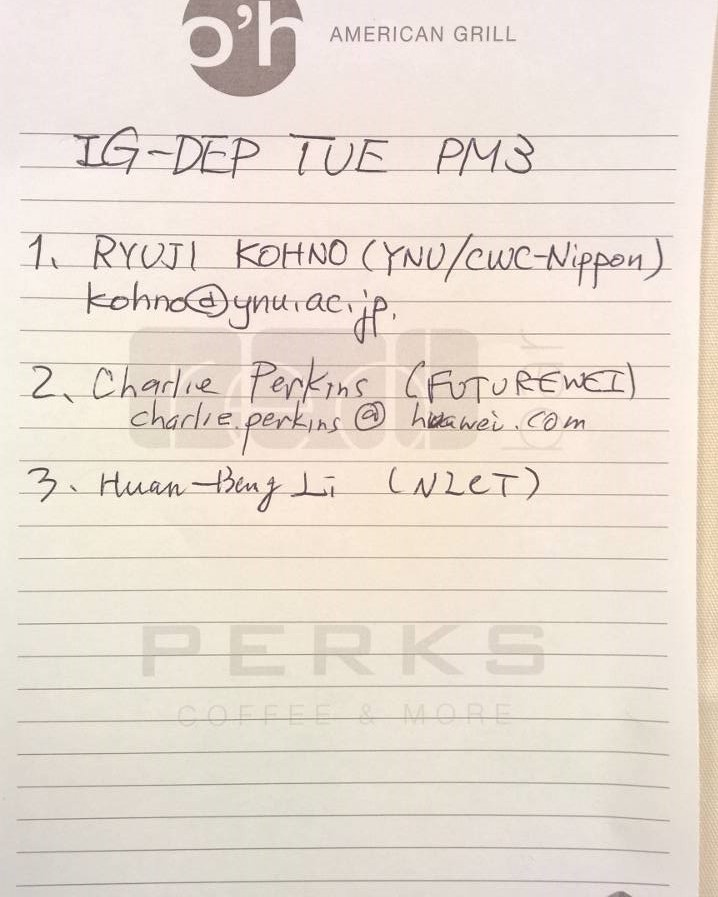 o'h AMERICAN GRILL
IG-DEP TUE PM3
1. RYUJI KOHNO (YNU/CWC-Nippon)
kohno@ynu.ac.jp.
2. Charlie Perkins (FUTUREWEI)
charlie.perkins @ huawei.com
3. Huan-Bang Li (NICT)
bar
PERKS
COFFEE & MORE